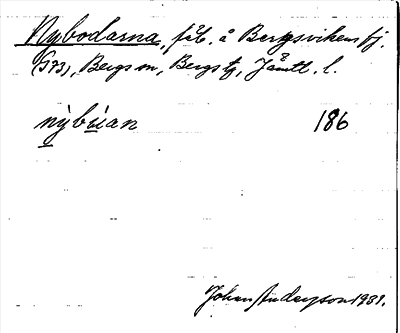 Nybodarna, fäb. å Bergsvikens fj.
(S73), Bergs sn, Bergs tg, Jämtl. l.
nybuan 186
Johan Anderson 1931.